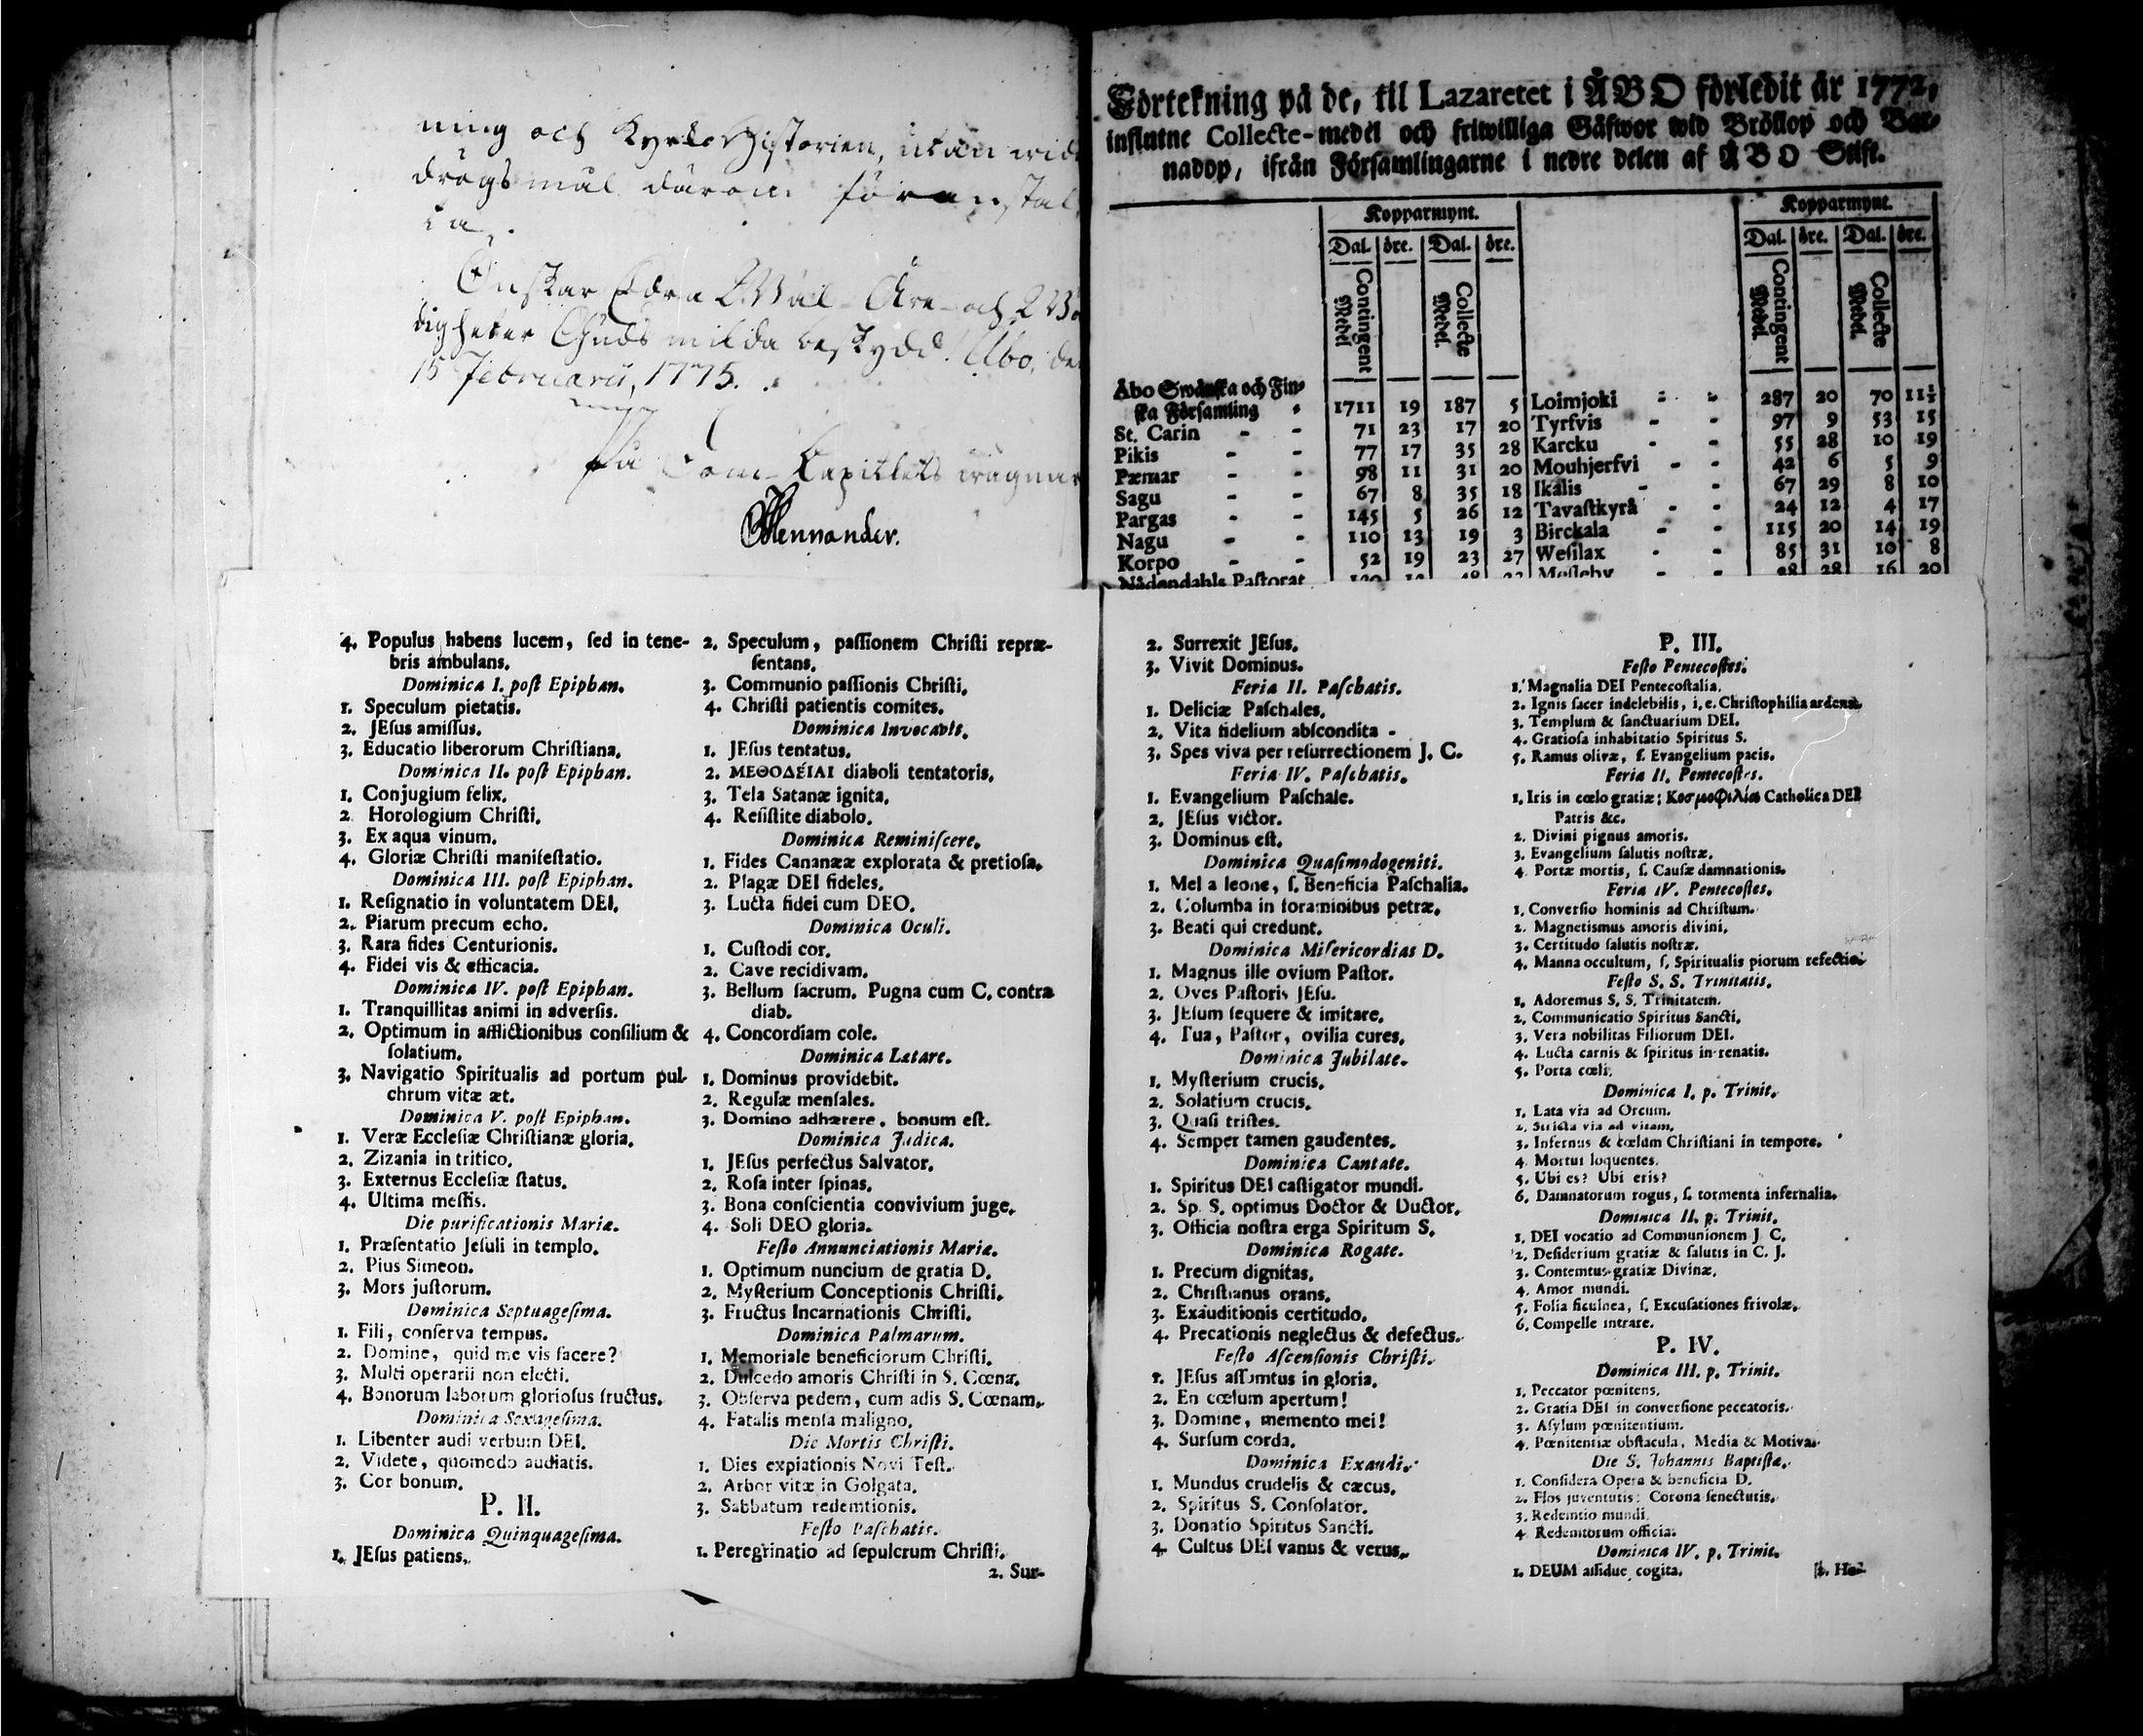 ning och Kyrko Historien, utan wid
drögsmål därom föranstal
ta.
Önskar Edra Wäl-Äre-och Wö
digheter Guds milda beskydd! Åbo, de
15 Februarii, 1775.
På Dom-Capitlets wägnar
Mennander.
Förtekning på de, til Lazaretet i ÅBO förledit år 1772,
influtne Collecte-medel och friwilliga Gåfwor wid Bröllop och Bar-
nadop, ifrån Församlingarne i nedre delen af ÅBO Stift.
Kopparmynt. Kopparmynt.
Dal. öre. Dal. öre. Dal. öre. Dal. öre.
Contingent Medel Collecte Medel. Contingent Medel. Collecte Medel.
Åbo Swänska och Fin-
ska Församling - 1711 19 187 5 Loimjoki - - 287 20 70 11½
St. Carin - - 71 23 17 20 Tyrfvis - - 97 9 53 15
Pikis - - 77 17 35 28 Karcku - - 55 28 10 19
Pæmar - - 98 11 31 20 Mouhjerfvi - - 42 6 5 9
Sagu - - 67 8 35 18 Ikalis - - 67 29 8 10
Pargas - - 145 5 26 12 Tavaſtkyrå - - 24 12 4 17
Nagu - - 110 13 19 3 Birckala - - 115 20 14 19
Korpo - - 52 19 23 27 Weſilax - - 85 31 10 8
Nådendahls Paſtorat Meſſeby - - 28 16 20
4. Populus habens lucem, ſed in tene-
bris ambulans.
Dominica I. poſt Epiphan.
1. Speculum pietatis.
2. JEſus amiſſus.
3. Educatio liberorum Chriſtiana.
Dominica II. poſt Epiphan.
1. Conjugium felix.
2. Horologium Chriſti.
3. Ex aqua vinum.
4. Gloriæ Chriſti manifeſtatio.
Dominica III. poſt Epiphan.
1. Reſignatio in voluntatem DEI.
2. Piarum precum echo.
3. Rara fides Centurionis.
4. Fidei vis & efficacia.
Dominica IV. poſt Epiphan.
1. Tranquillitas animi in adverſis.
2. Optimum in afflictionibus conſilium &
ſolatium.
3. Navigatio Spiritualis ad portum pul-
chrum vitæ æt.
Dominica V. poſt Epiphan.
1. Veræ Eccleſiæ Chriſtianæ gloria.
2. Zizania in tritico.
3. Externus Eccleſiæ ſtatus.
4. Ultima meſſis.
Die purificationis Mariæ.
1. Præſentatio Jeſuli in templo.
2. Pius Simeon.
3. Mors juſtorum.
Dominica Septuageſima.
1. Fili, conſerva tempus.
2. Domine, quid me vis facere?
3. Multi operarii non electi.
4. Bonorum laborum glorioſus fructus.
Dominica Sexageſima.
1. Libenter audi verbum DEI.
2. Videte, quomodo audiatis.
3. Cor bonum.
P. II.
Dominica Quinquageſima.
1. JEſus patiens.
2. Speculum, paſſionem Chriſti repræ-
ſentans.
3. Communio paſſionis Chriſti.
4. Chriſti patientis comites.
Dominica Invocavit.
1. JEſus tentatus.
2. ΜΕΘΟΔΕΊΑΙ diaboli tentatoris.
3. Tela Satanæ ignita.
4. Reſiſtite diabolo.
Dominica Reminiſcere.
1. Fides Cananææ explorata & pretioſa.
2. Plagæ DEI fideles.
3. Lucta fidei cum DEO.
Dominica Oculi.
1. Cuſtodi cor.
2. Cave recidivam.
3. Bellum ſacrum. Pugna cum C. contra
diab.
4. Concordiam cole.
Dominica Lætare.
1. Dominus providebit.
2. Regulæ menſales.
3. Domino adhærere, bonum eſt.
Dominica Judica.
1. JEſus perfectus Salvator.
2. Roſa inter ſpinas.
3. Bona conſcientia convivium juge.
4. Soli DEO gloria.
Feſto Annunciationis Mariæ.
1. Optimum nuncium de gratia D.
2. Myſterium Conceptionis Chriſti.
3. Fructus Incarnationis Chriſti.
Dominica Palmarum.
1. Memoriale beneficiorum Chriſti.
2. Dulcedo amoris Chriſti in S. Cœna.
3. Obſerva pedem, cum adis S. Cœnam.
4. Fatalis menſa maligno.
Die Mortis Chriſti.
1. Dies expiationis Novi Teſt.
2. Arbor vitæ in Golgata.
3. Sabbatum redemtionis.
Feſto Paſchatis.
1. Peregrinatio ad ſepulcrum Chriſti.
2. Sur-
2. Surrexit JEſus.
3. Vivit Dominus.
Feria II. Paſchatis.
1. Deliciæ Paſchales.
2. Vita fidelium abſcondita -
3. Spes viva per reſurrectionem J. C.
Feria IV. Paſchatis.
1. Evangelium Paſchale.
2. JEſus victor.
3. Dominus eſt.
Dominica Quaſimodogeniti.
1. Mel a leone, ſ. Beneficia Paſchalia.
2. Columba in foraminibus petræ.
3. Beati qui credunt.
Dominica Miſericordias D.
1. Magnus ille ovium Paſtor.
2. Oves Paſtoris JEſu.
3. JEſum ſequere & imitare.
4. Tua, Paſtor, ovilia cures.
Dominica Jubilate.
1. Myſterium crucis.
2. Solatium crucis.
3. Quaſi triſtes.
4. Semper tamen gaudentes.
Dominica Cantate.
1. Spiritus DEI caſtigator mundi.
2. Sp. S. optimus Doctor & Ductor.
3. Officia noſtra erga Spiritum S.
Dominica Rogate.
1. Precum dignitas.
2. Chriſtianus orans.
3. Exauditionis certitudo.
4. Precationis neglectus & defectus.
Feſto Aſcenſionis Chriſti.
1. JEſus aſſumtus in gloria.
2. En cœlum apertum!
3. Domine, memento mei!
4. Surſum corda.
Dominica Exaudi.
1. Mundus crudelis & cæcus.
2. Spiritus S. Conſolator.
3. Donatio Spiritus Sancti.
4. Cultus DEI vanus & verus.
P. III.
Feſto Pentecoſtes.
1. Magnalia DEI Pentecoſtalia.
2. Ignis ſacer indelebilis, i. e. Chriſtophilia ardens.
3. Templum & ſanctuarium DEI.
4. Gratioſa inhabitatio Spiritus S.
5. Ramus olivæ, ſ. Evangelium pacis.
Feria II. Pentecoſtes.
1. Iris in cœlo gratiæ; Κοσμοφιλία Catholica DEI
Patris &c.
2. Divini pignus amoris.
3. Evangelium ſalutis noſtræ.
4. Portæ mortis, ſ. Cauſæ damnationis.
Feria IV. Pentecoſtes.
1. Converſio hominis ad Chriſtum.
2. Magnetismus amoris divini.
3. Certitudo ſalutis noſtræ.
4. Manna occultum, ſ. Spiritualis piorum refectio.
Feſto S. S. Trinitatis.
1. Adoremus S. S. Trinitatem.
2. Communicatio Spiritus Sancti.
3. Vera nobilitas Filiorum DEI.
4. Lucta carnis & ſpiritus in renatis.
5. Porta cœli.
Dominica I. p. Trinit.
1. Lata via ad Orcum.
2. Stricta via ad vitam.
3. Infernus & cœlum Chriſtiani in tempore.
4. Mortui loquentes.
5. Ubi es? Ubi eris?
6. Damnatorum rogus, ſ. tormenta infernalia.
Dominica II. p. Trinit.
1. DEI vocatio ad Communionem J. C.
2. Deſiderium gratiæ & ſalutis in C. J.
3. Contemtus gratiæ Divinæ.
4. Amor mundi.
5. Folia ficulnea, ſ. Excuſationes frivolæ.
6. Compelle intrare.
P. IV.
Dominica III. p. Trinit.
1. Peccator pœnitens.
2. Gratia DEI in converſione peccatoris.
3. Aſylum pœnitentium.
4. Pœnitentiæ obſtacula, Media & Motiva.
Die S. Johannis Baptiſtæ.
1. Conſidera Opera & beneficia D.
2. Flos juventutis: Corona ſenectutis.
3. Redemtio mundi.
4. Redemtorum officia.
Dominica IV. p. Trinit.
1. DEUM aſſidue cogita.